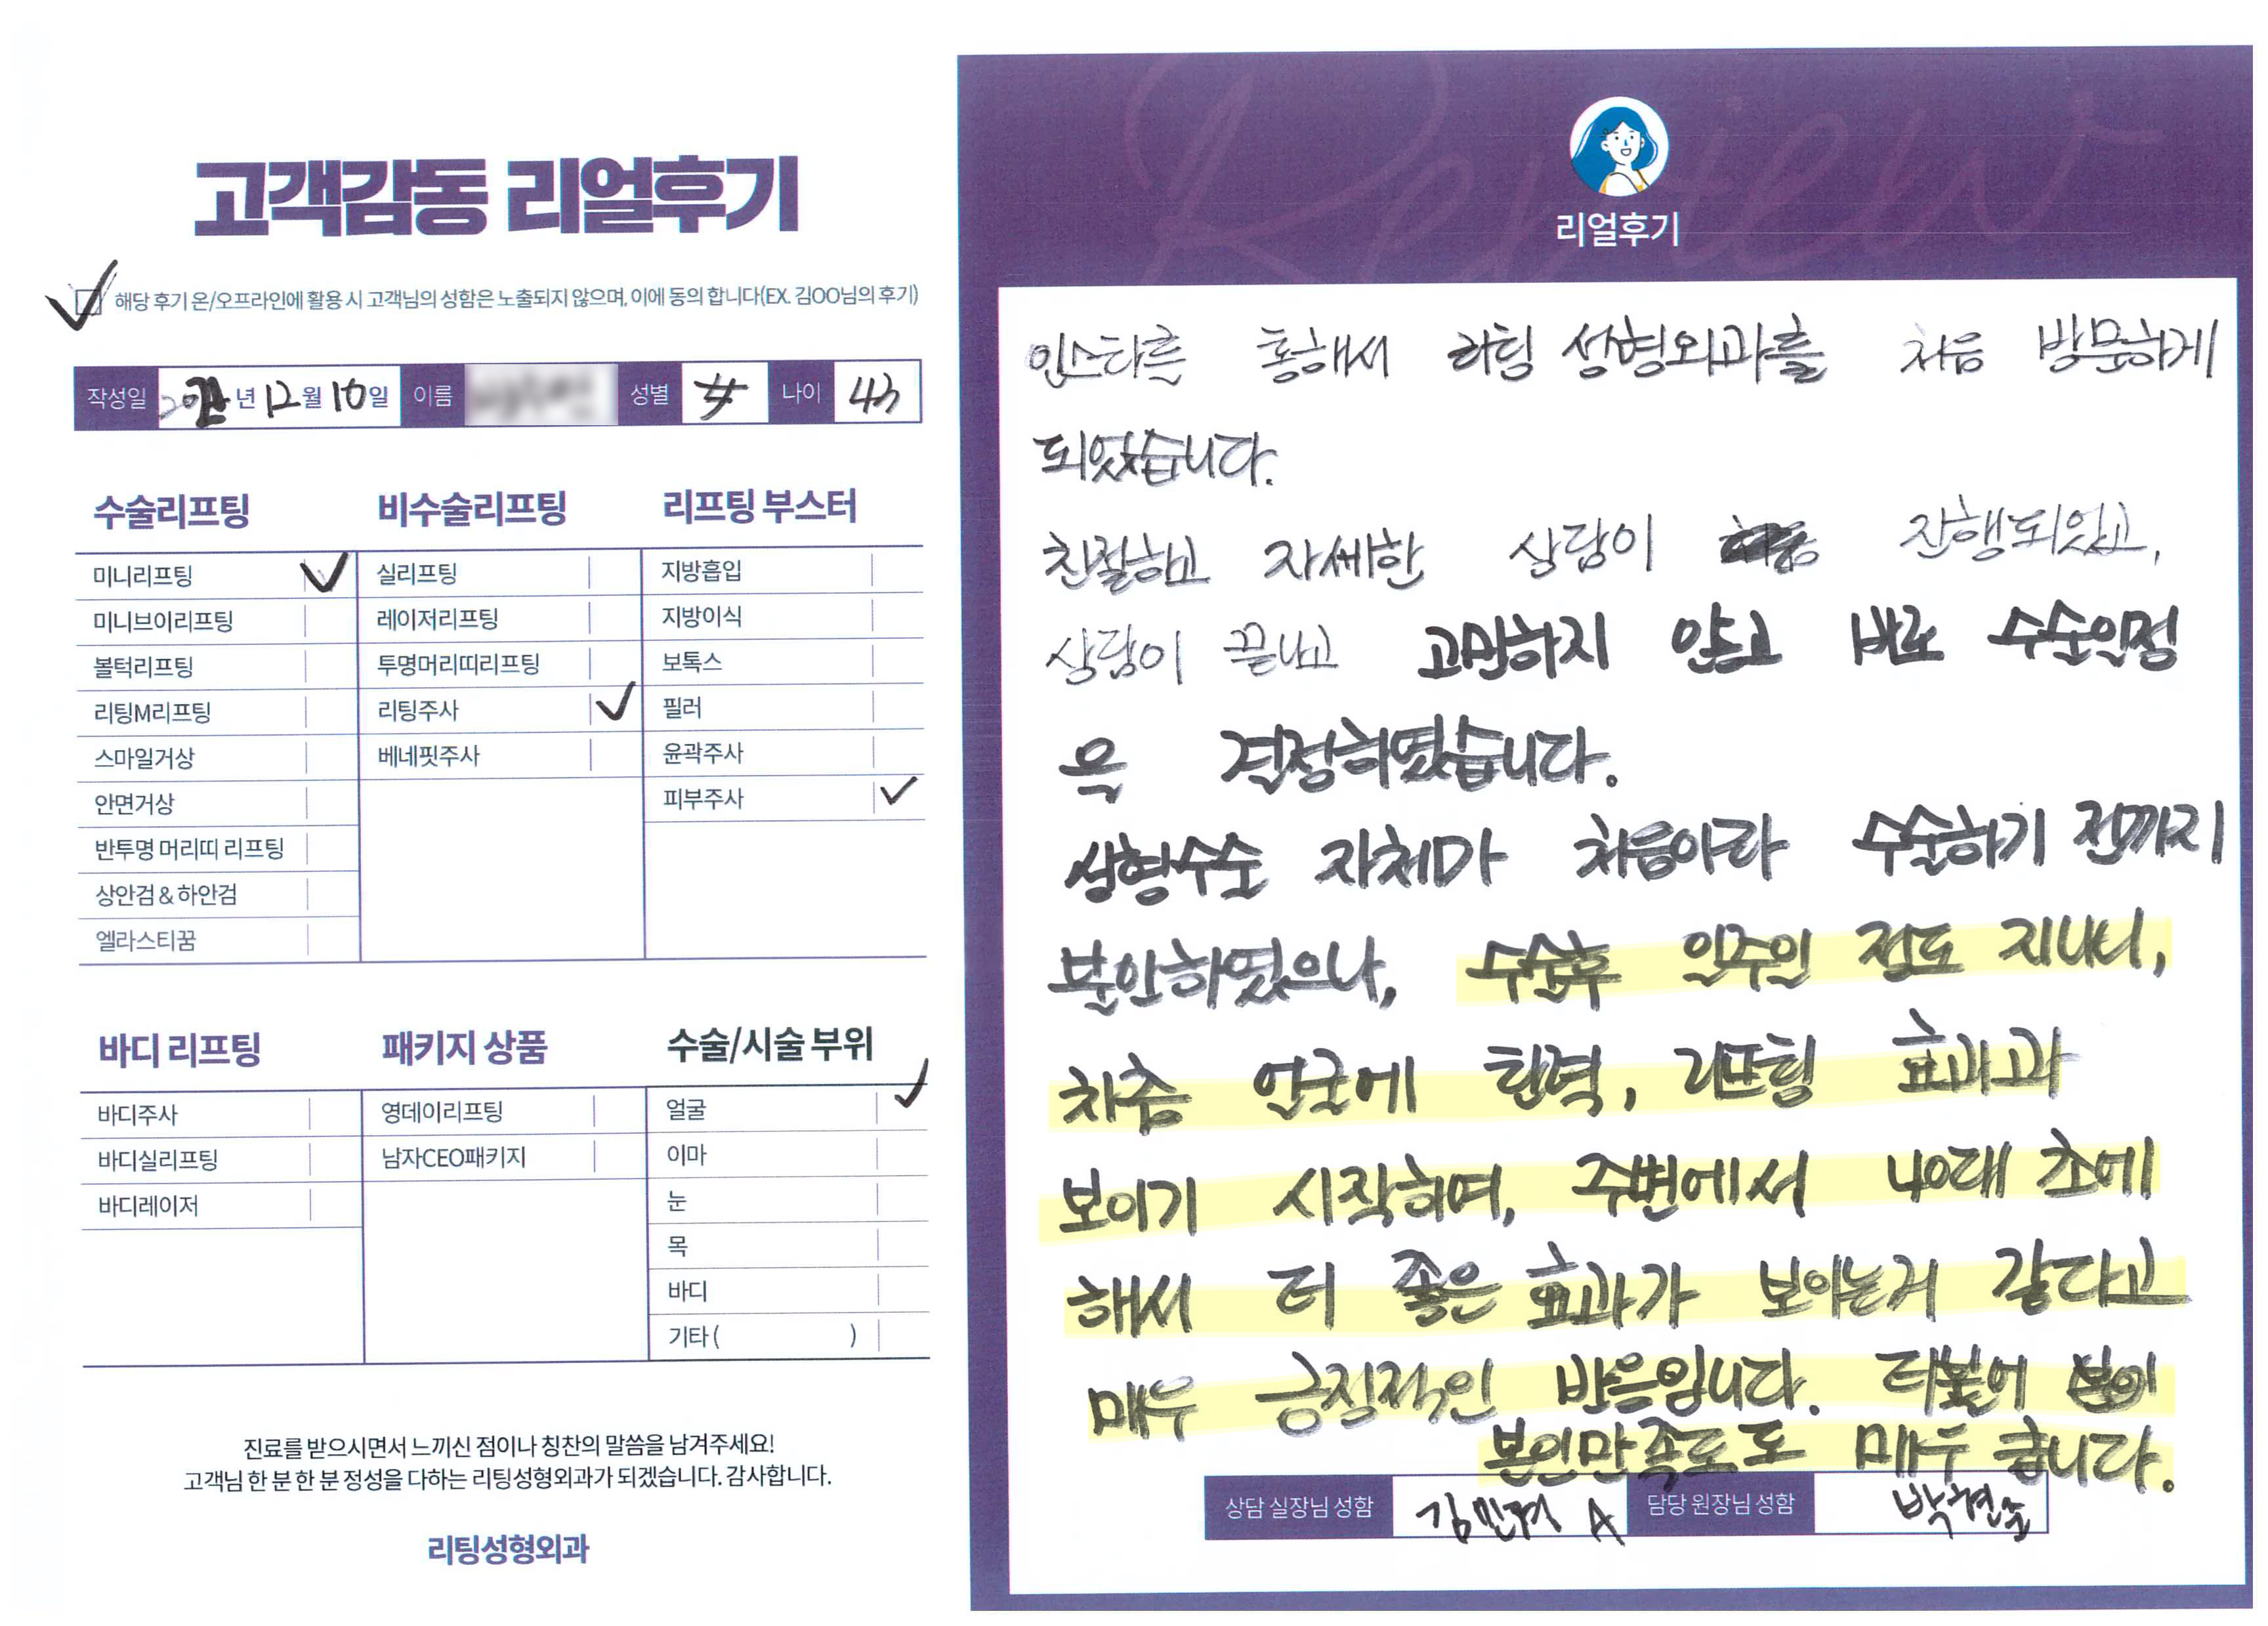 고객감동 리얼후기
해당 후기 온/오프라인에 활용 시 고객님의 성함은 노출되지 않으며, 이에 동의 합니다(EX. 김OO님의 후기)
작성일 년 12월 10일 이름 성별 나이 43
수술리프팅 비수술리프팅 리프팅 부스터
미니리프팅 실리프팅 지방흡입
미니브이리프팅 레이저리프팅 지방이식
볼턱리프팅 투명머리띠리프팅 보톡스
리팅M리프팅 리팅주사 필러
스마일거상 베네핏주사 윤곽주사
안면거상 피부주사
반투명 머리띠 리프팅
상안검 & 하안검
엘라스티꿈
바디 리프팅 패키지 상품 수술/시술 부위
바디주사 영데이리프팅 얼굴
바디실리프팅 남자CEO패키지 이마
바디레이저 눈
목
바디
기타 ( )
진료를 받으시면서 느끼신 점이나 칭찬의 말씀을 남겨주세요!
고객님 한 분 한 분 정성을 다하는 리팅성형외과가 되겠습니다. 감사합니다.
리팅성형외과
Review
리얼후기
인스타를 통해서 리팅 성형외과를 처음 방문하게
되었습니다.
친절하고 자세한 상담이 진행되었고,
상담이 끝나고 고민하지 않고 바로 수술일정
을 결정하였습니다.
성형수술 자체가 처음이라 수술하기 전까지
불안하였으나, 수술후 일주일 정도 지나니,
차츰 얼굴에 탄력, 리프팅 효과과
보이기 시작하며, 주변에서 40대 초에
해서 더 좋은 효과가 보이는거 같다고
매우 긍정적인 반응입니다. 더불어
본인만족도도 매우 큽니다.
상담 실장님 성함 김민겨 A 담당 원장님 성함 박현준